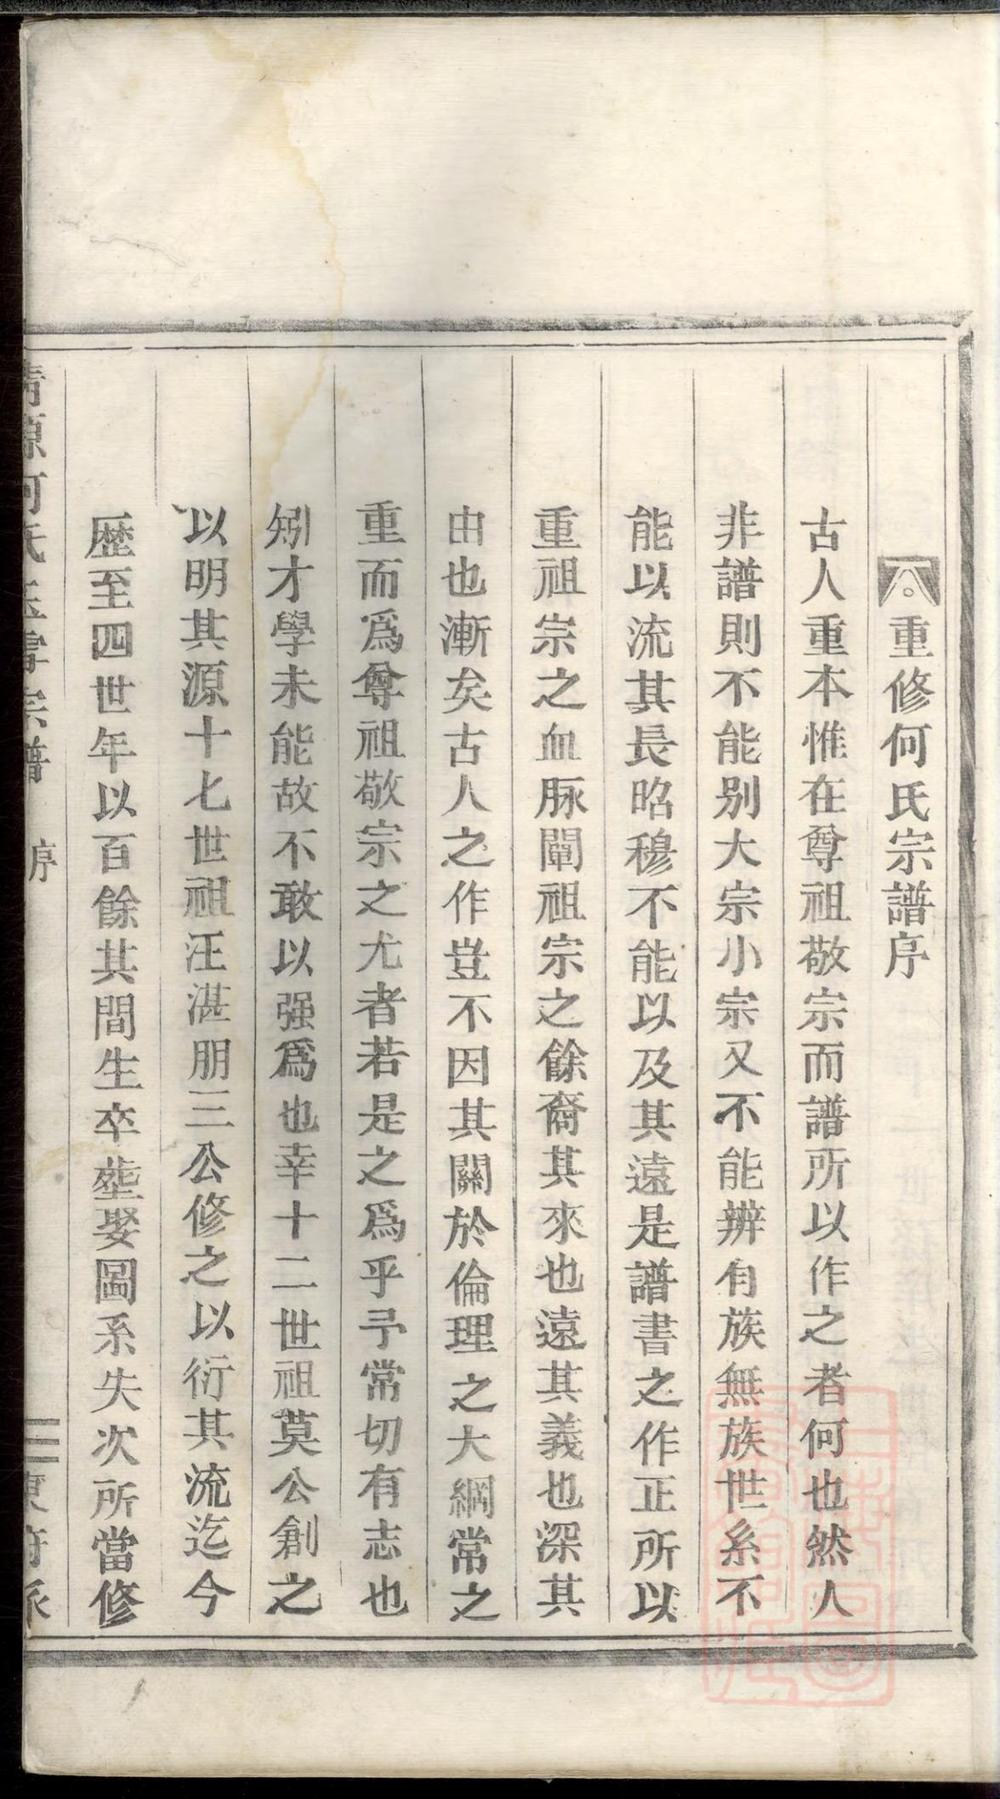 重修何氏宗譜序
古人重本惟在尊祖敬宗而譜所以作之者何也然人
非譜則不能别大宗小宗又不能辨有族無族世系不
能以流其長昭穆不能以及其遠是譜書之作正所以
重祖宗之血脉闡祖宗之餘裔其來也遠其義也深其
由也漸矣古人之作豈不因其關於倫理之大綱常之
重而爲尊祖敬宗之尤者若是之爲乎予常切有志也
矧才學未能故不敢以强爲也幸十二世祖莫公創之
以明其源十七世祖汪湛朋三公修之以衍其流迄今
歷至四世年以百餘其間生卒塟娶圖系失次所當修
清源何氏宗譜 序 三 東府派